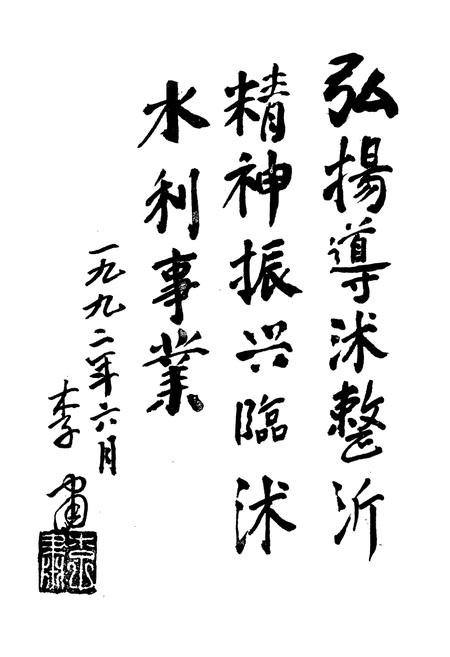 弘揚導沭整沂
精神振兴臨沭
水利事業
一九九二年六月
李肅